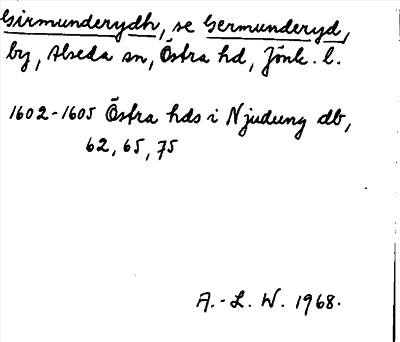 Girmunderydh, se Germunderyd,
by, Alseda sn, Östra hd, Jönk. l.
1602-1605 Östra hds i Njudung db,
62, 65, 75
A.-L. W. 1968.